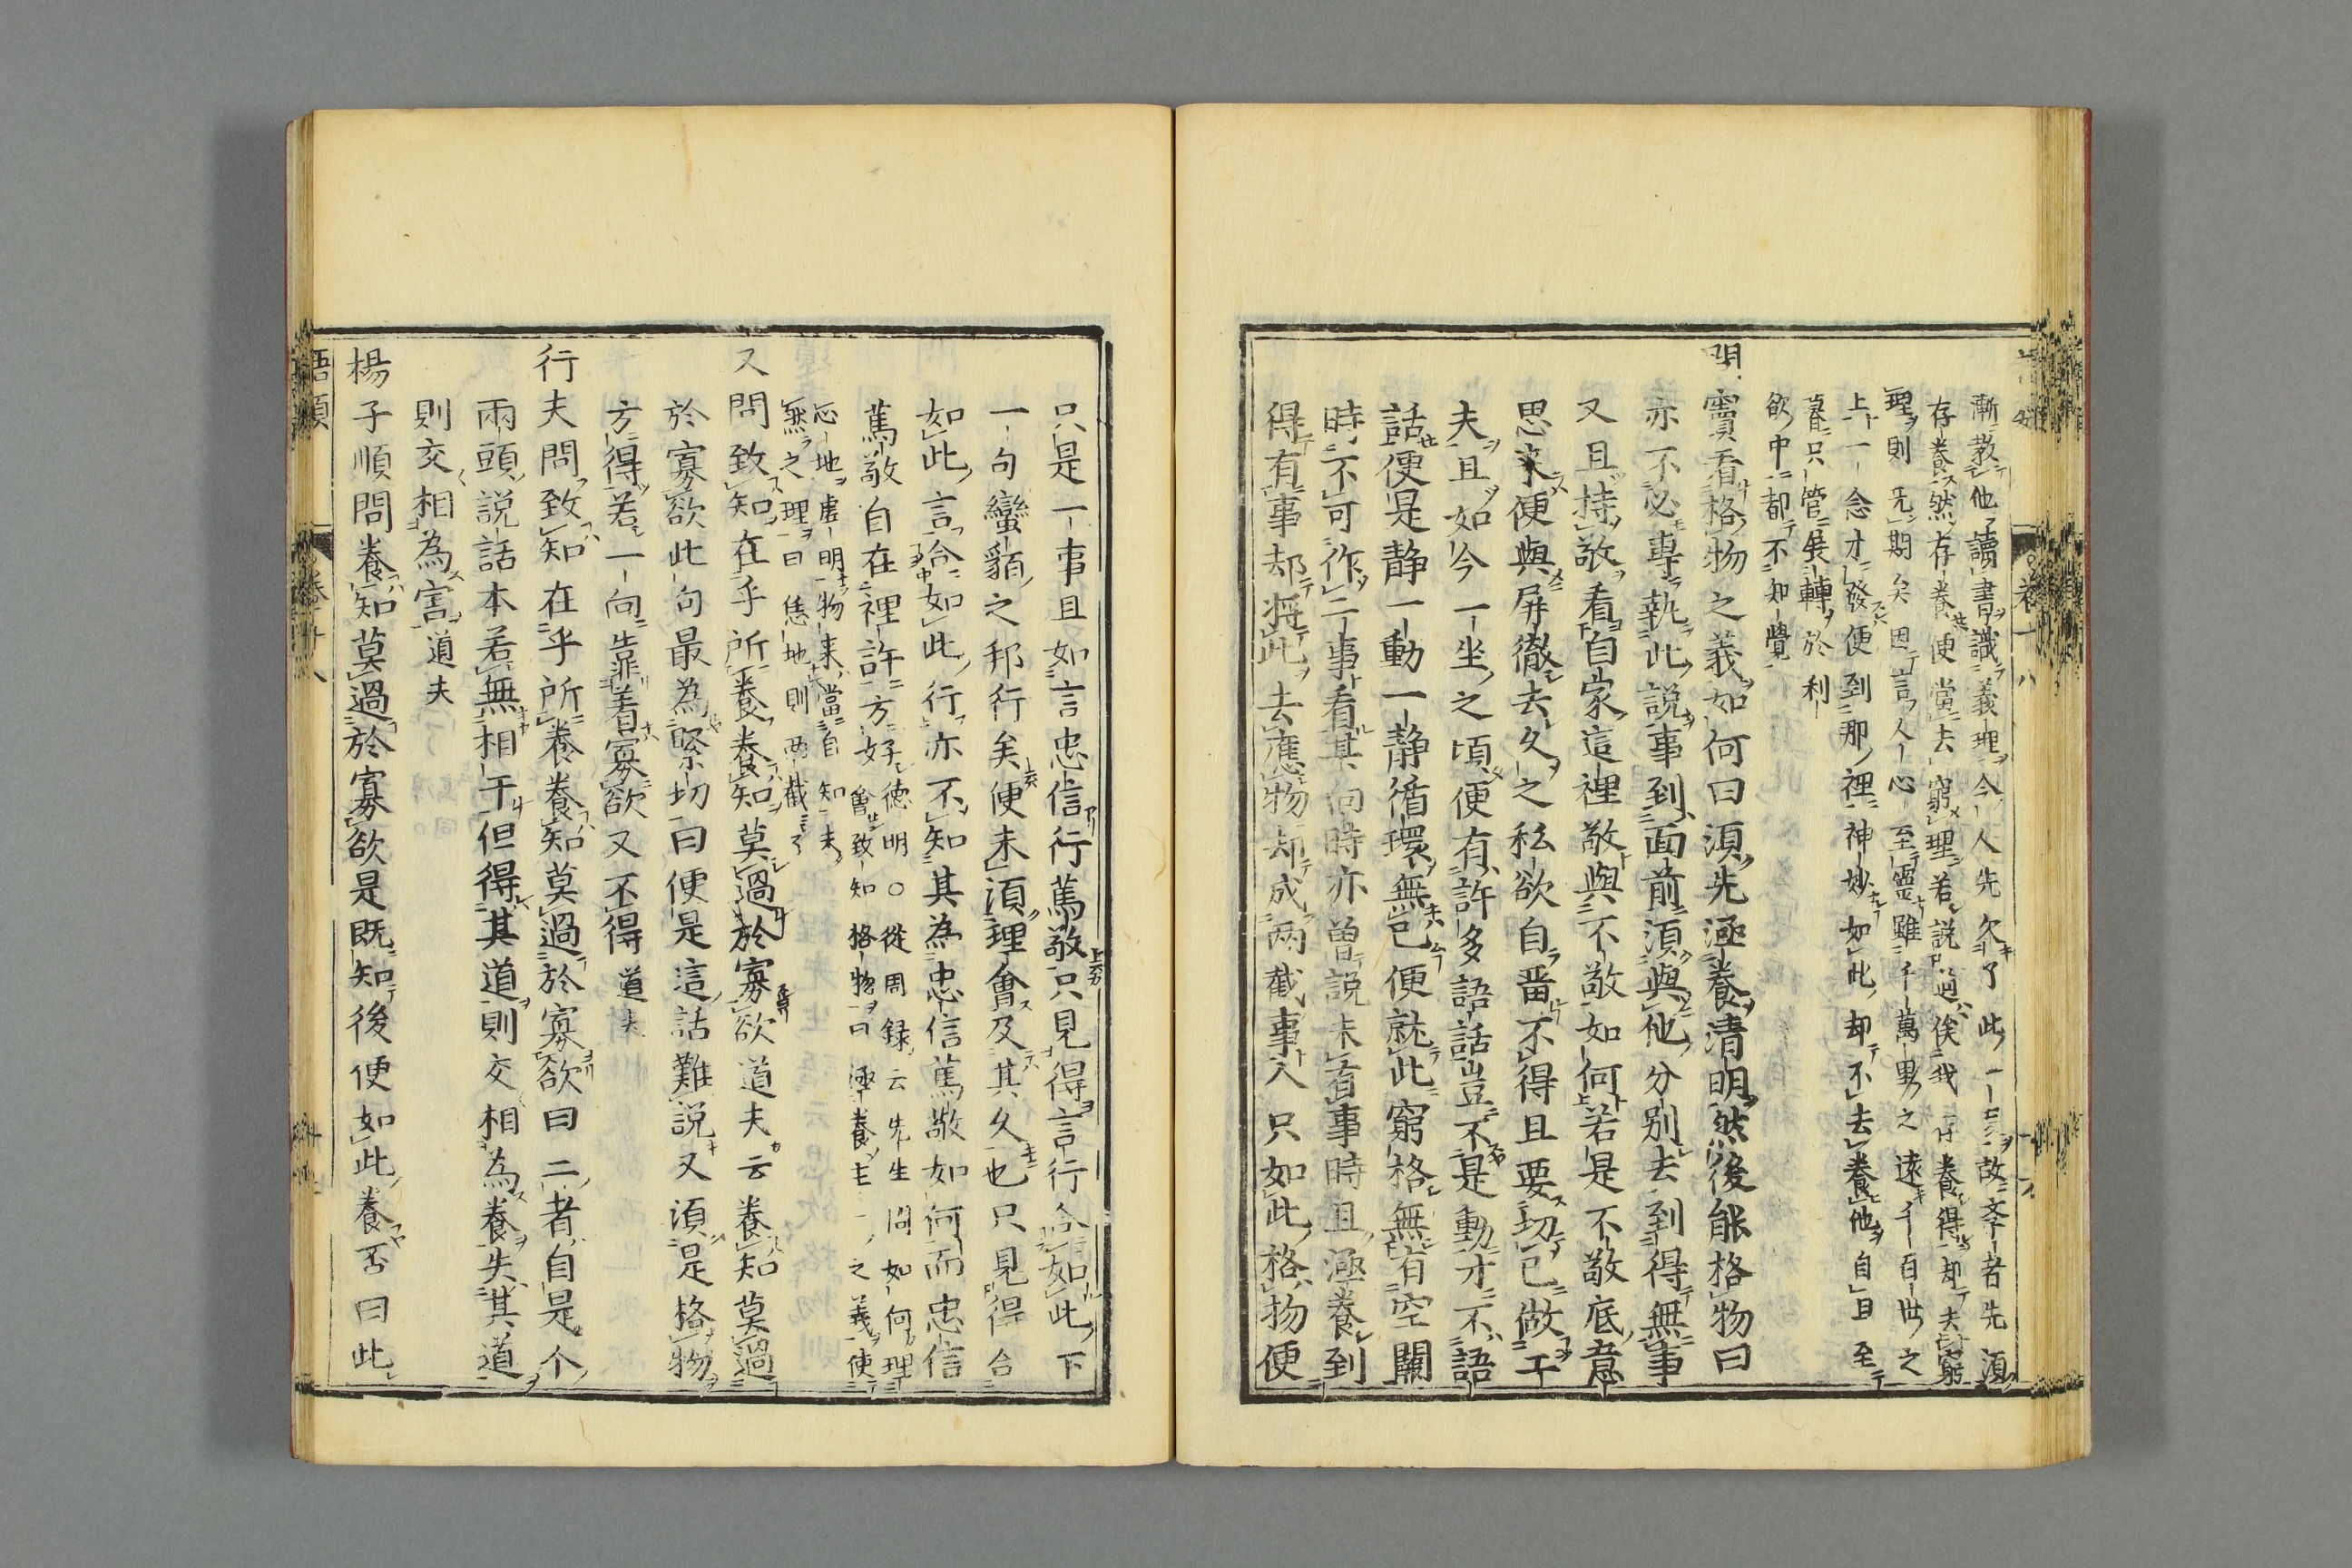 漸教他讀書識義理今人先欠了此一段故学者先須
存養然存養便當去窮理若説道俟我存養得却去窮
理則无期矣因言人心至靈雖千萬里之遠千百世之
上一念才發便到那裡神妙如此却不去養他自旦至
暮只管展轉於利
欲中都不知覺
問竇看格物之義如何曰須先涵養清明然後能格物曰
亦不必專執此説事到面前須與他分別去到得無事
又且持敬看自家這裡敬與不敬如何若是不敬底意
思来便與屏徹去久之私欲自畱不得且要切已做工
夫且如今一坐之頃便有許多語話豈不是動才不語
話便是静一動一静循環無已便就此窮格無有空闕
時不可作二事看某向時亦曽説未有事時且涵養到
得有事却将此去應物却成两截事今只如此格物便
只是一事且如言忠信行篤敬只見得言行合如此下
一句蠻貊之邦行矣便未須理會及其久也只見得合
如此言合如此行亦不知其為忠信篤敬如何而忠信
篤敬自在裡許方好德明○從周録云先生問如何理
會致知格物曰涵養主一之義使
心地虚明物来當自知未
然之理曰恁地則两截了
又問致知在乎所養養知莫過於寡欲道夫云養知莫過
於寡欲此句最為緊切曰便是這話難説又須是格物
方得若一向靠着寡欲又不得道夫
行夫問致知在乎所養養知莫過於寡欲曰二者自是个
兩頭説話本若無相干但得其道則交相為養失其道
則交相為害道夫
楊子順問養知莫過於寡欲是既知後便如此養否曰此
語類　卷十八